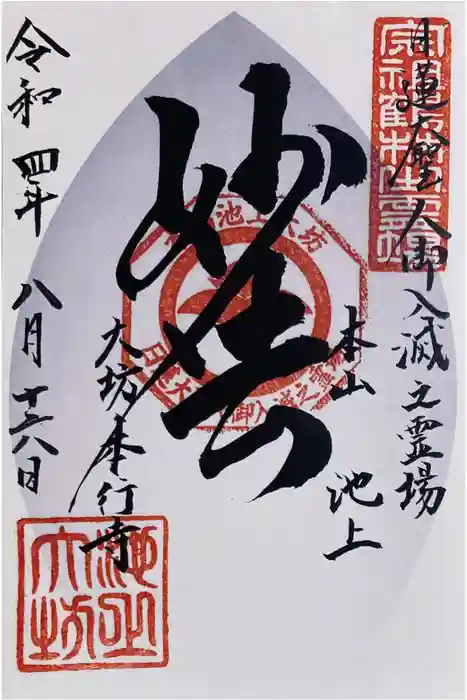 日蓮大聖人御入滅之霊場
本山 池上
妙法
大坊本行寺
令和四年 八月十六日
池上大坊